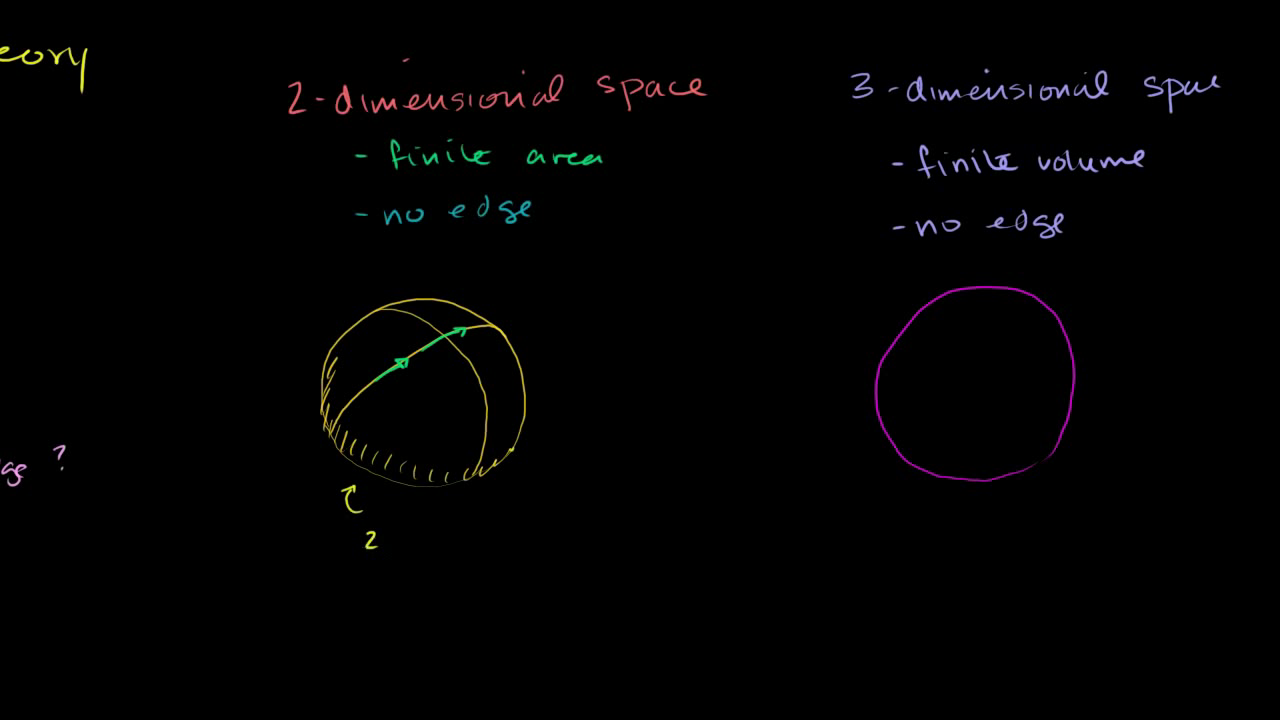 eory
2-dimensional space
- finite area
- no edge
3-dimensional space
- finite volume
- no edge
age ?
2